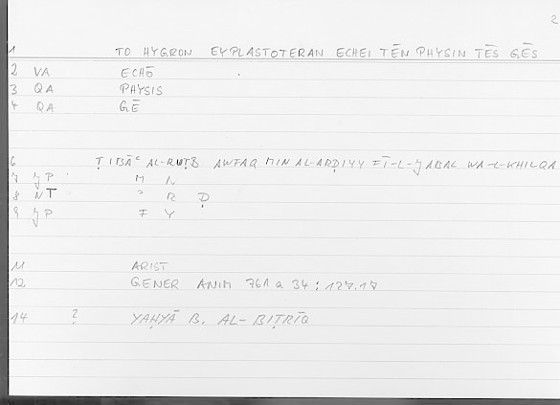 2
1 TO HYGRON EYPLASTOTERAN ECHEI TĒN PHYSIN TĒS GĒS
2 VA ECHŌ
3 QA PHYSIS
4 QA GĒ
6 ṬIBĀʿ AL-RUṬB AWFAQ MIN AL-ARḌIYY FĪ-L-JABAL WA-L-KHILQA
7 JP M N
8 NT ʾ R Ḍ
9 JP F Y
11 ARIST
12 GENER ANIM 761 a 34 : 127.17
14 ? YAḤYĀ B. AL-BIṬRĪQ